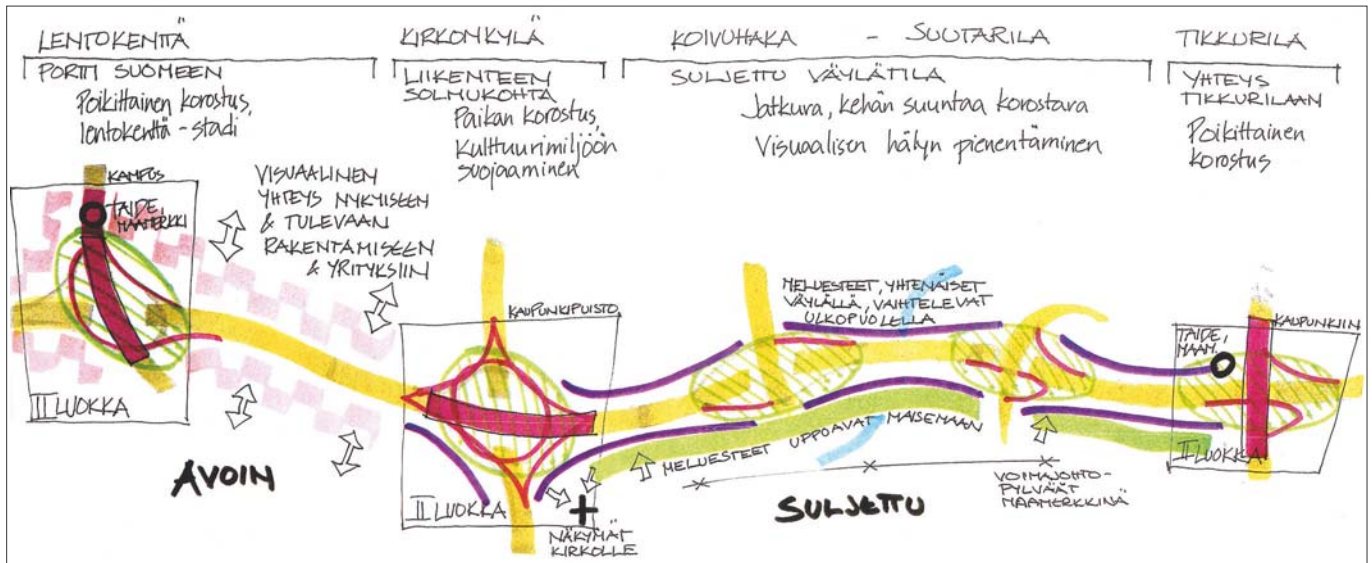 LENTOKENTTÄ
PORTTI SUOMEEN
Poikittainen korostus,
lentokenttä - stadi
KIRKONKYLÄ
LIIKENTEEN
SOLMUKOHTA
Paikan korostus,
Kulttuurimiljöön
suojaaminen
KOIVUHAKA - SUUTARILA
SULJETTU VÄYLÄTILA
Jatkuva, kehän suuntaa korostava
Visuaalisen hälyn pienentäminen
TIKKURILA
YHTEYS
TIKKURILAAN
Poikittainen
korostus
KAMPUS
TAIDE,
MAAMERKKI
II LUOKKA
VISUAALINEN
YHTEYS NYKYISEEN
& TULEVAAN
RAKENTAMISEEN
& YRITYKSIIN
AVOIN
KAUPUNKIPUISTO
II LUOKKA
NÄKYMÄT
KIRKOLLE
MELUESTEET, YHTENÄISET
VÄYLÄLLÄ, VAIHTELEVAT
ULKOPUOLELLA
MELUESTEET UPPOAVAT MAISEMAAN
SULJETTU
VOIMAJOHTO-
PYLVÄÄT
MAAMERKKINÄ
KAUPUNKIIN
TAIDE,
MAAM.
II LUOKKA